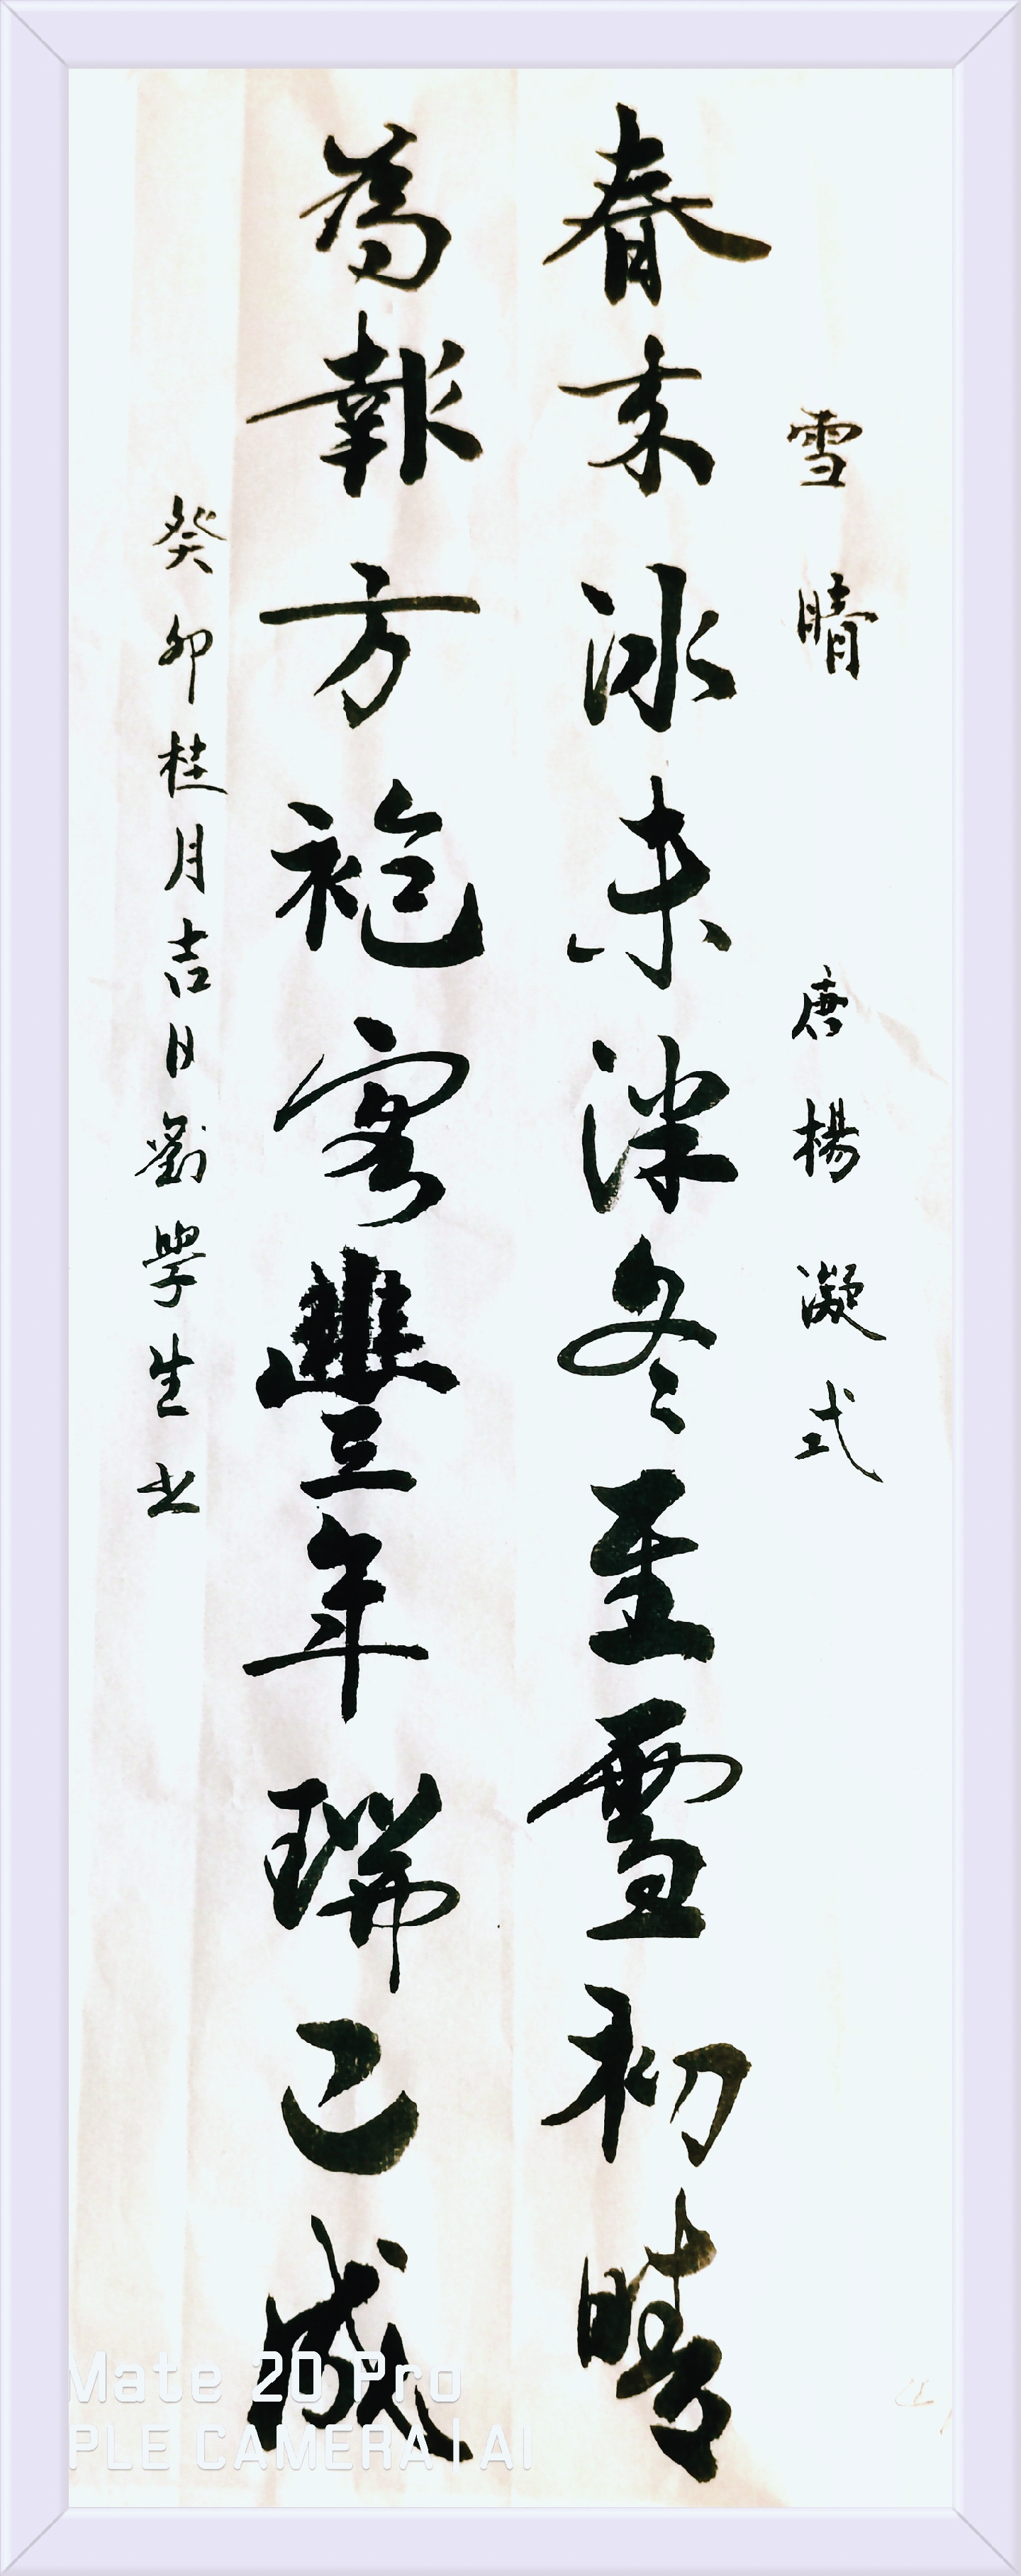 雪晴 唐楊凝式
春來冰未泮冬至雪初晴
為報方袍客豐年瑞已成
癸卯桂月吉日劉學生书
Mate 20 Pro
PLE CAMERA|AI